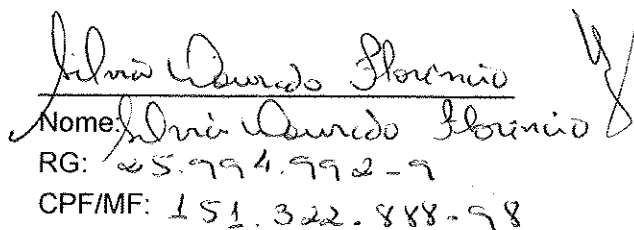 Silvia Dourado Florencio
Nome: Silvia Dourado Florencio
RG: 25.994.992-9
CPF/MF: 151.322.888-98